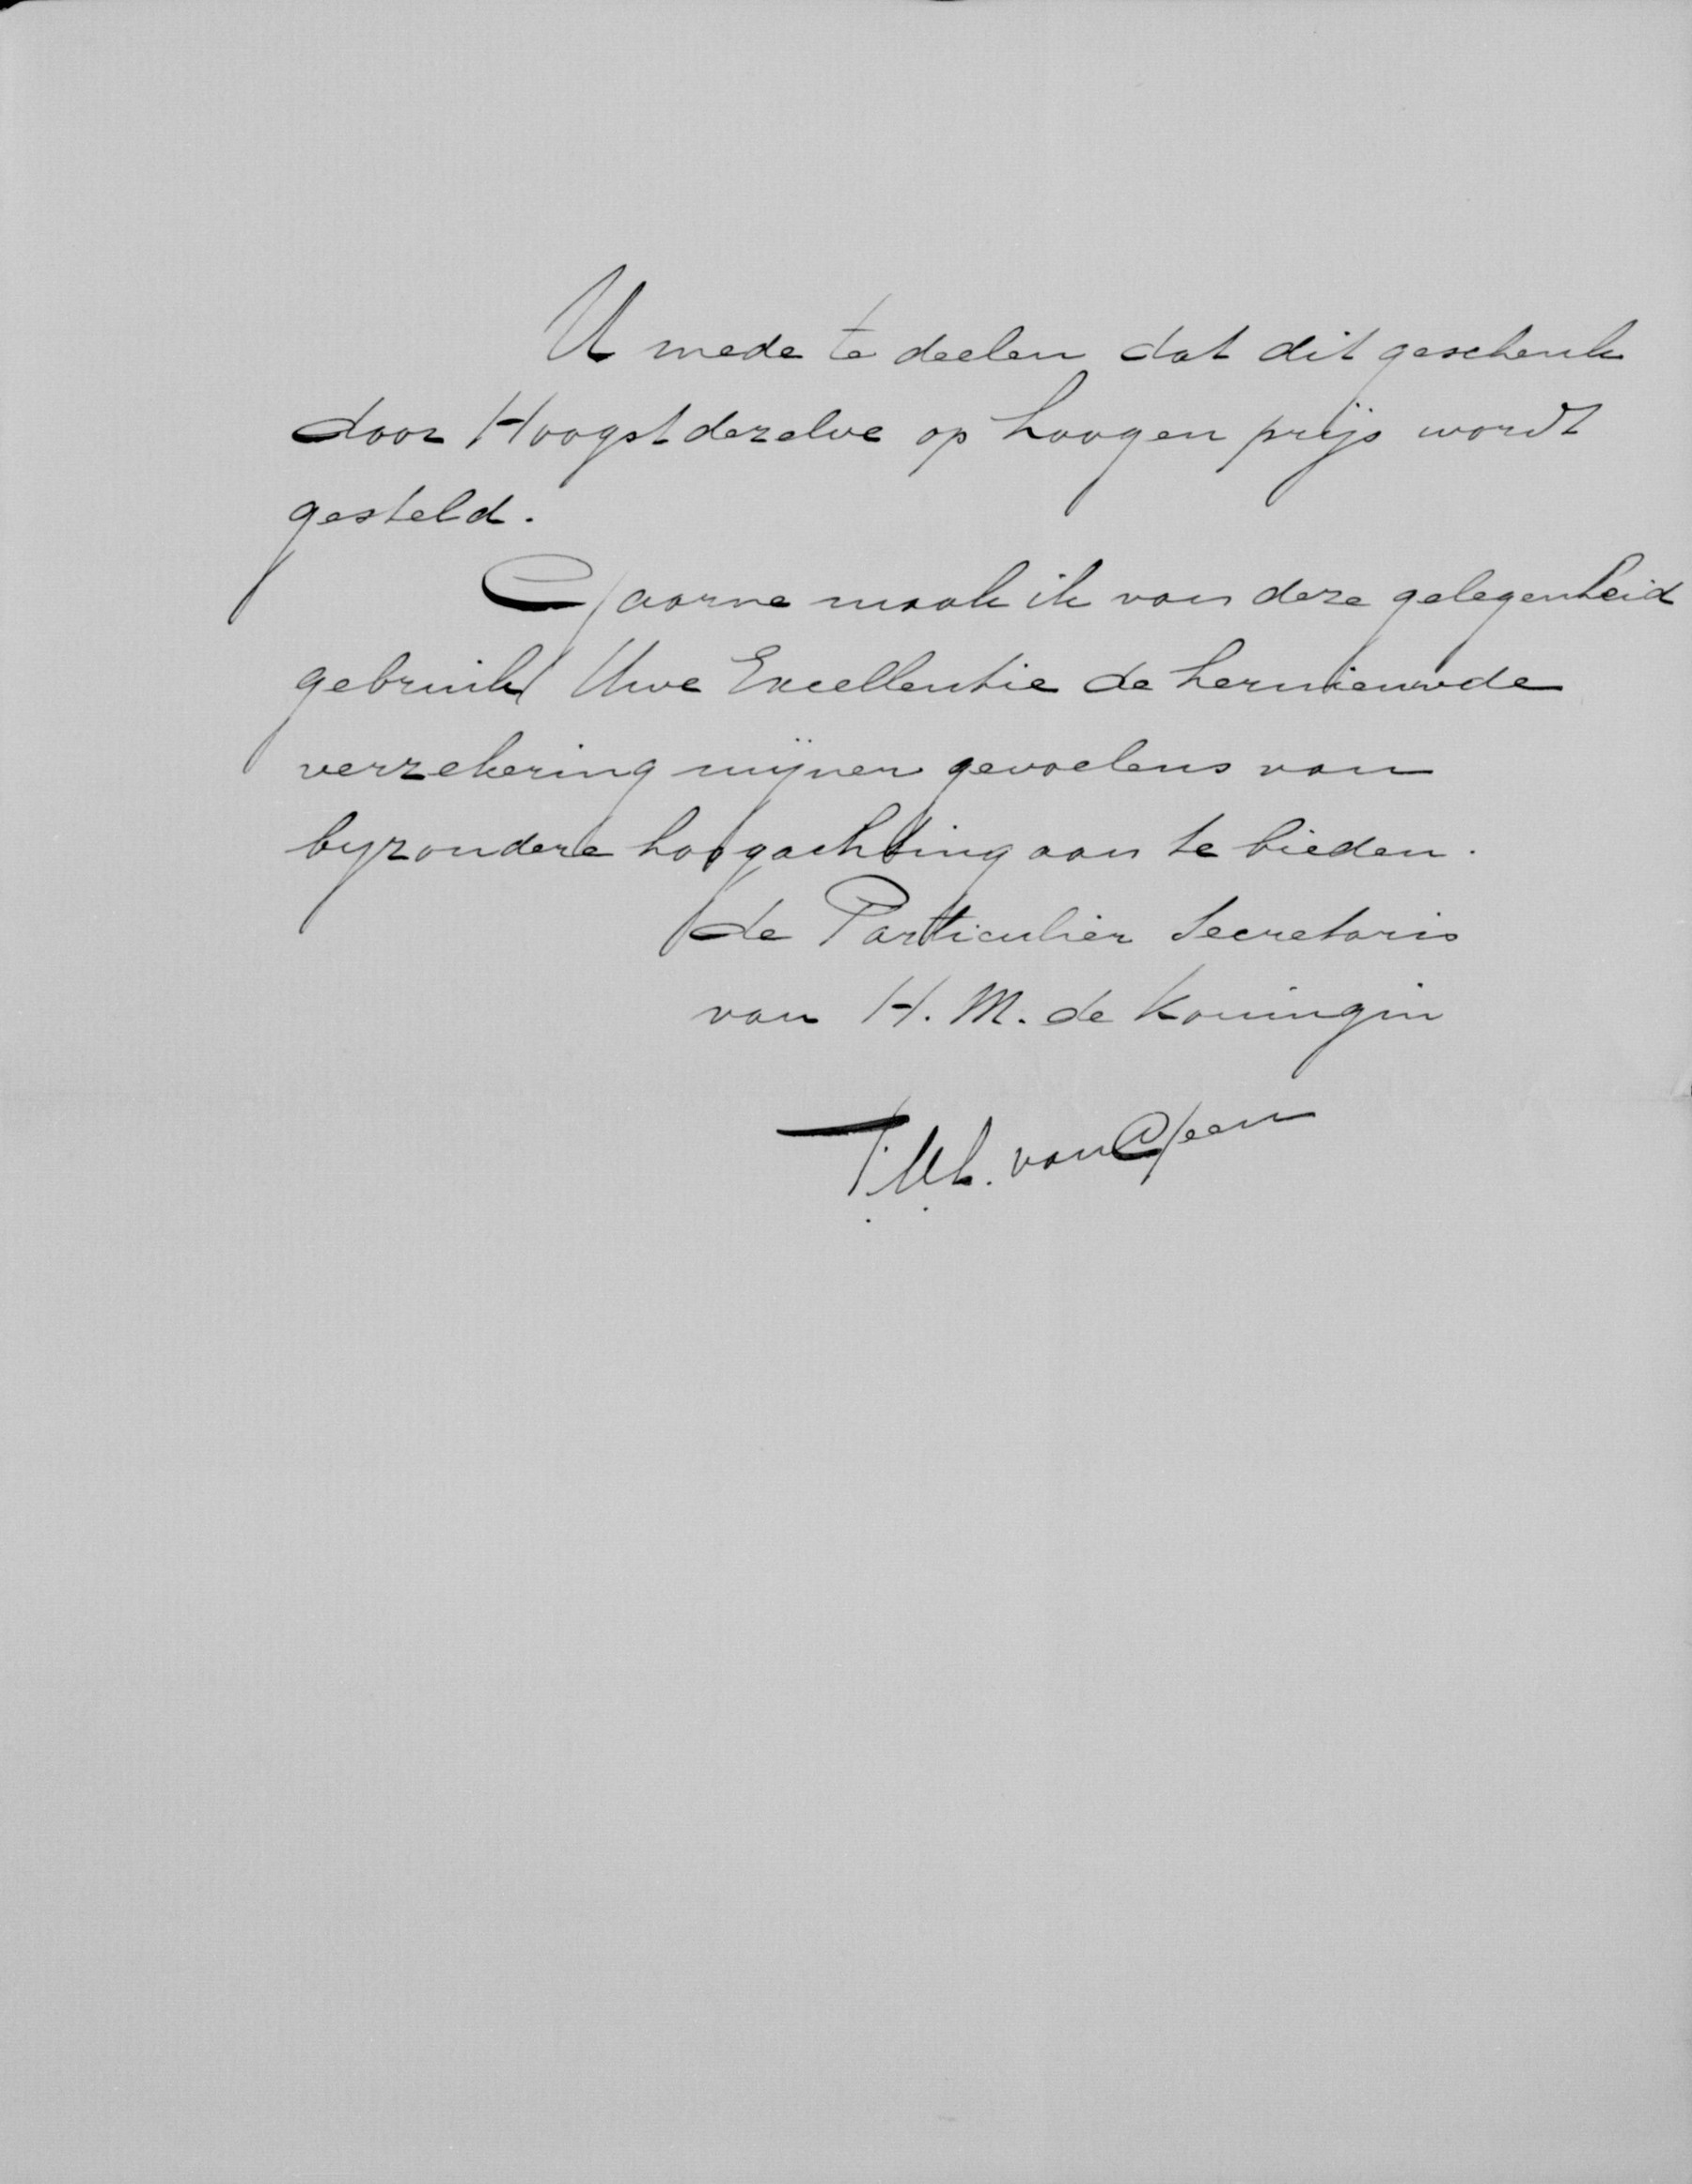 U mede te deelen dat dit geschenk
door Hoogstdezelve op hoogen prijs wordt
gesteld.
Gaarne maak ik van deze gelegenheid
gebruik Uwe Excellentie de hernieuwde
verzekering mijner gevoelens van
byzondere hoogachting aan te bieden.
de Particulier Secretaris
van H. M. de Koningin
van Geen